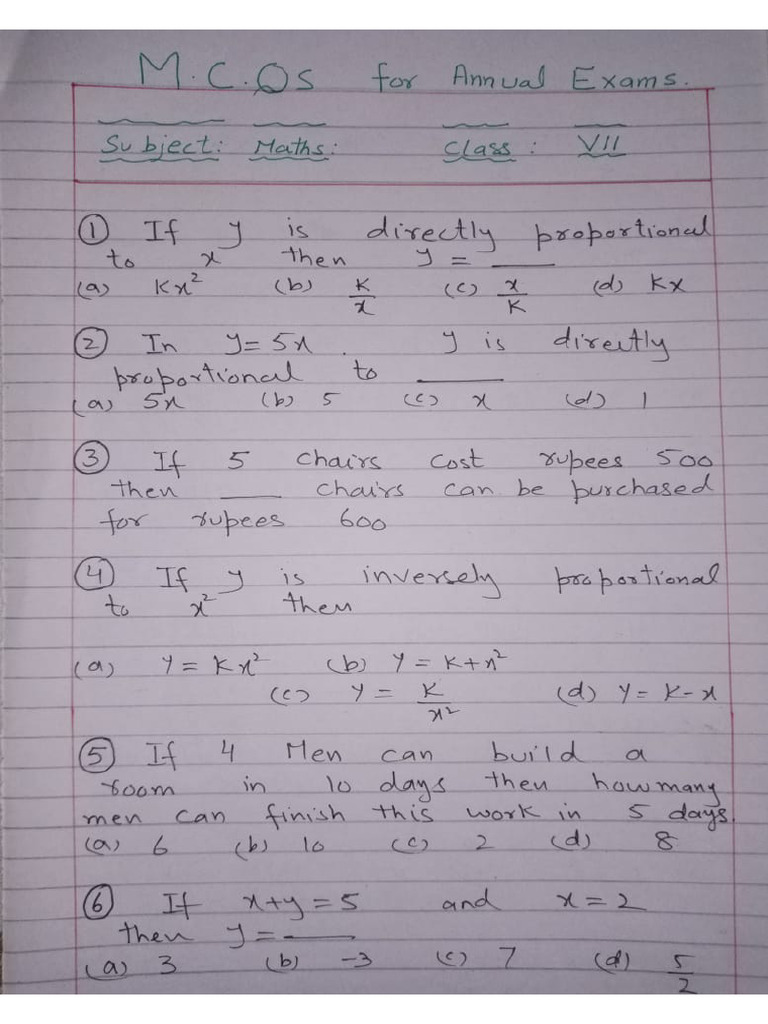 M.C.Qs for Annual Exams.
Subject: Maths: Class: VII
① If y is directly proportional
to x then y = ____
(a) Kx² (b) K/x (c) x/K (d) Kx
② In y=5x. y is directly
proportional to ____
(a) 5x (b) 5 (c) x (d) 1
③ If 5 chairs cost rupees 500
then ____ chairs can be purchased
for rupees 600
④ If y is inversely proportional
to x² then
(a) Y = Kx² (b) Y = K+x²
(c) Y = K/x² (d) Y = K-x
⑤ If 4 Men can build a
room in 10 days then how many
men can finish this work in 5 days.
(a) 6 (b) 10 (c) 2 (d) 8
⑥ If x+y=5 and x=2
then y=____
(a) 3 (b) -3 (c) 7 (d) 5/2